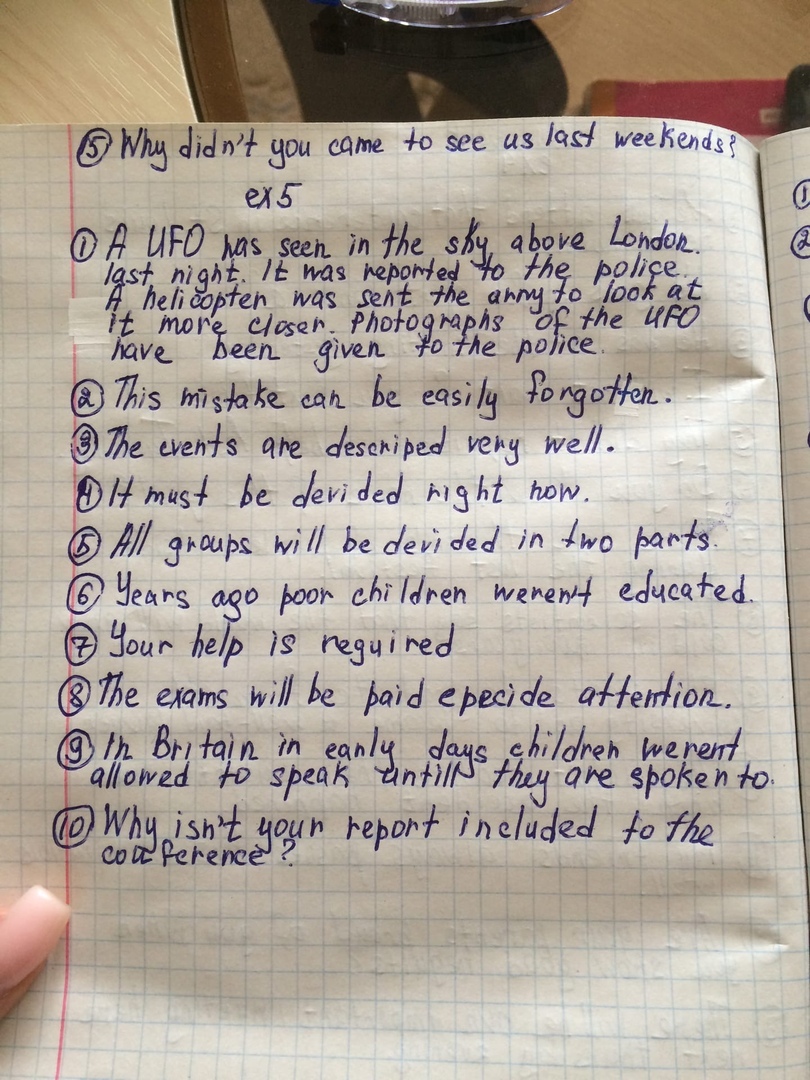 ⑤ Why didn't you came to see us last weekends?
ex 5
① A UFO was seen in the sky above London.
last night. It was reported to the police.
A helicopter was sent the army to look at
it more closer. Photographs of the UFO
have been given to the police.
② This mistake can be easily forgotten.
③ The events are descriped very well.
④ It must be devided right now.
⑤ All groups will be devided in two parts.
⑥ Years ago poor children weren't educated.
⑦ Your help is reguired
⑧ The exams will be paid epecide attention.
⑨ In Britain in early days children werent
allowed to speak untill they are spoken to.
⑩ Why isn't your report included to the
conference?
①
②